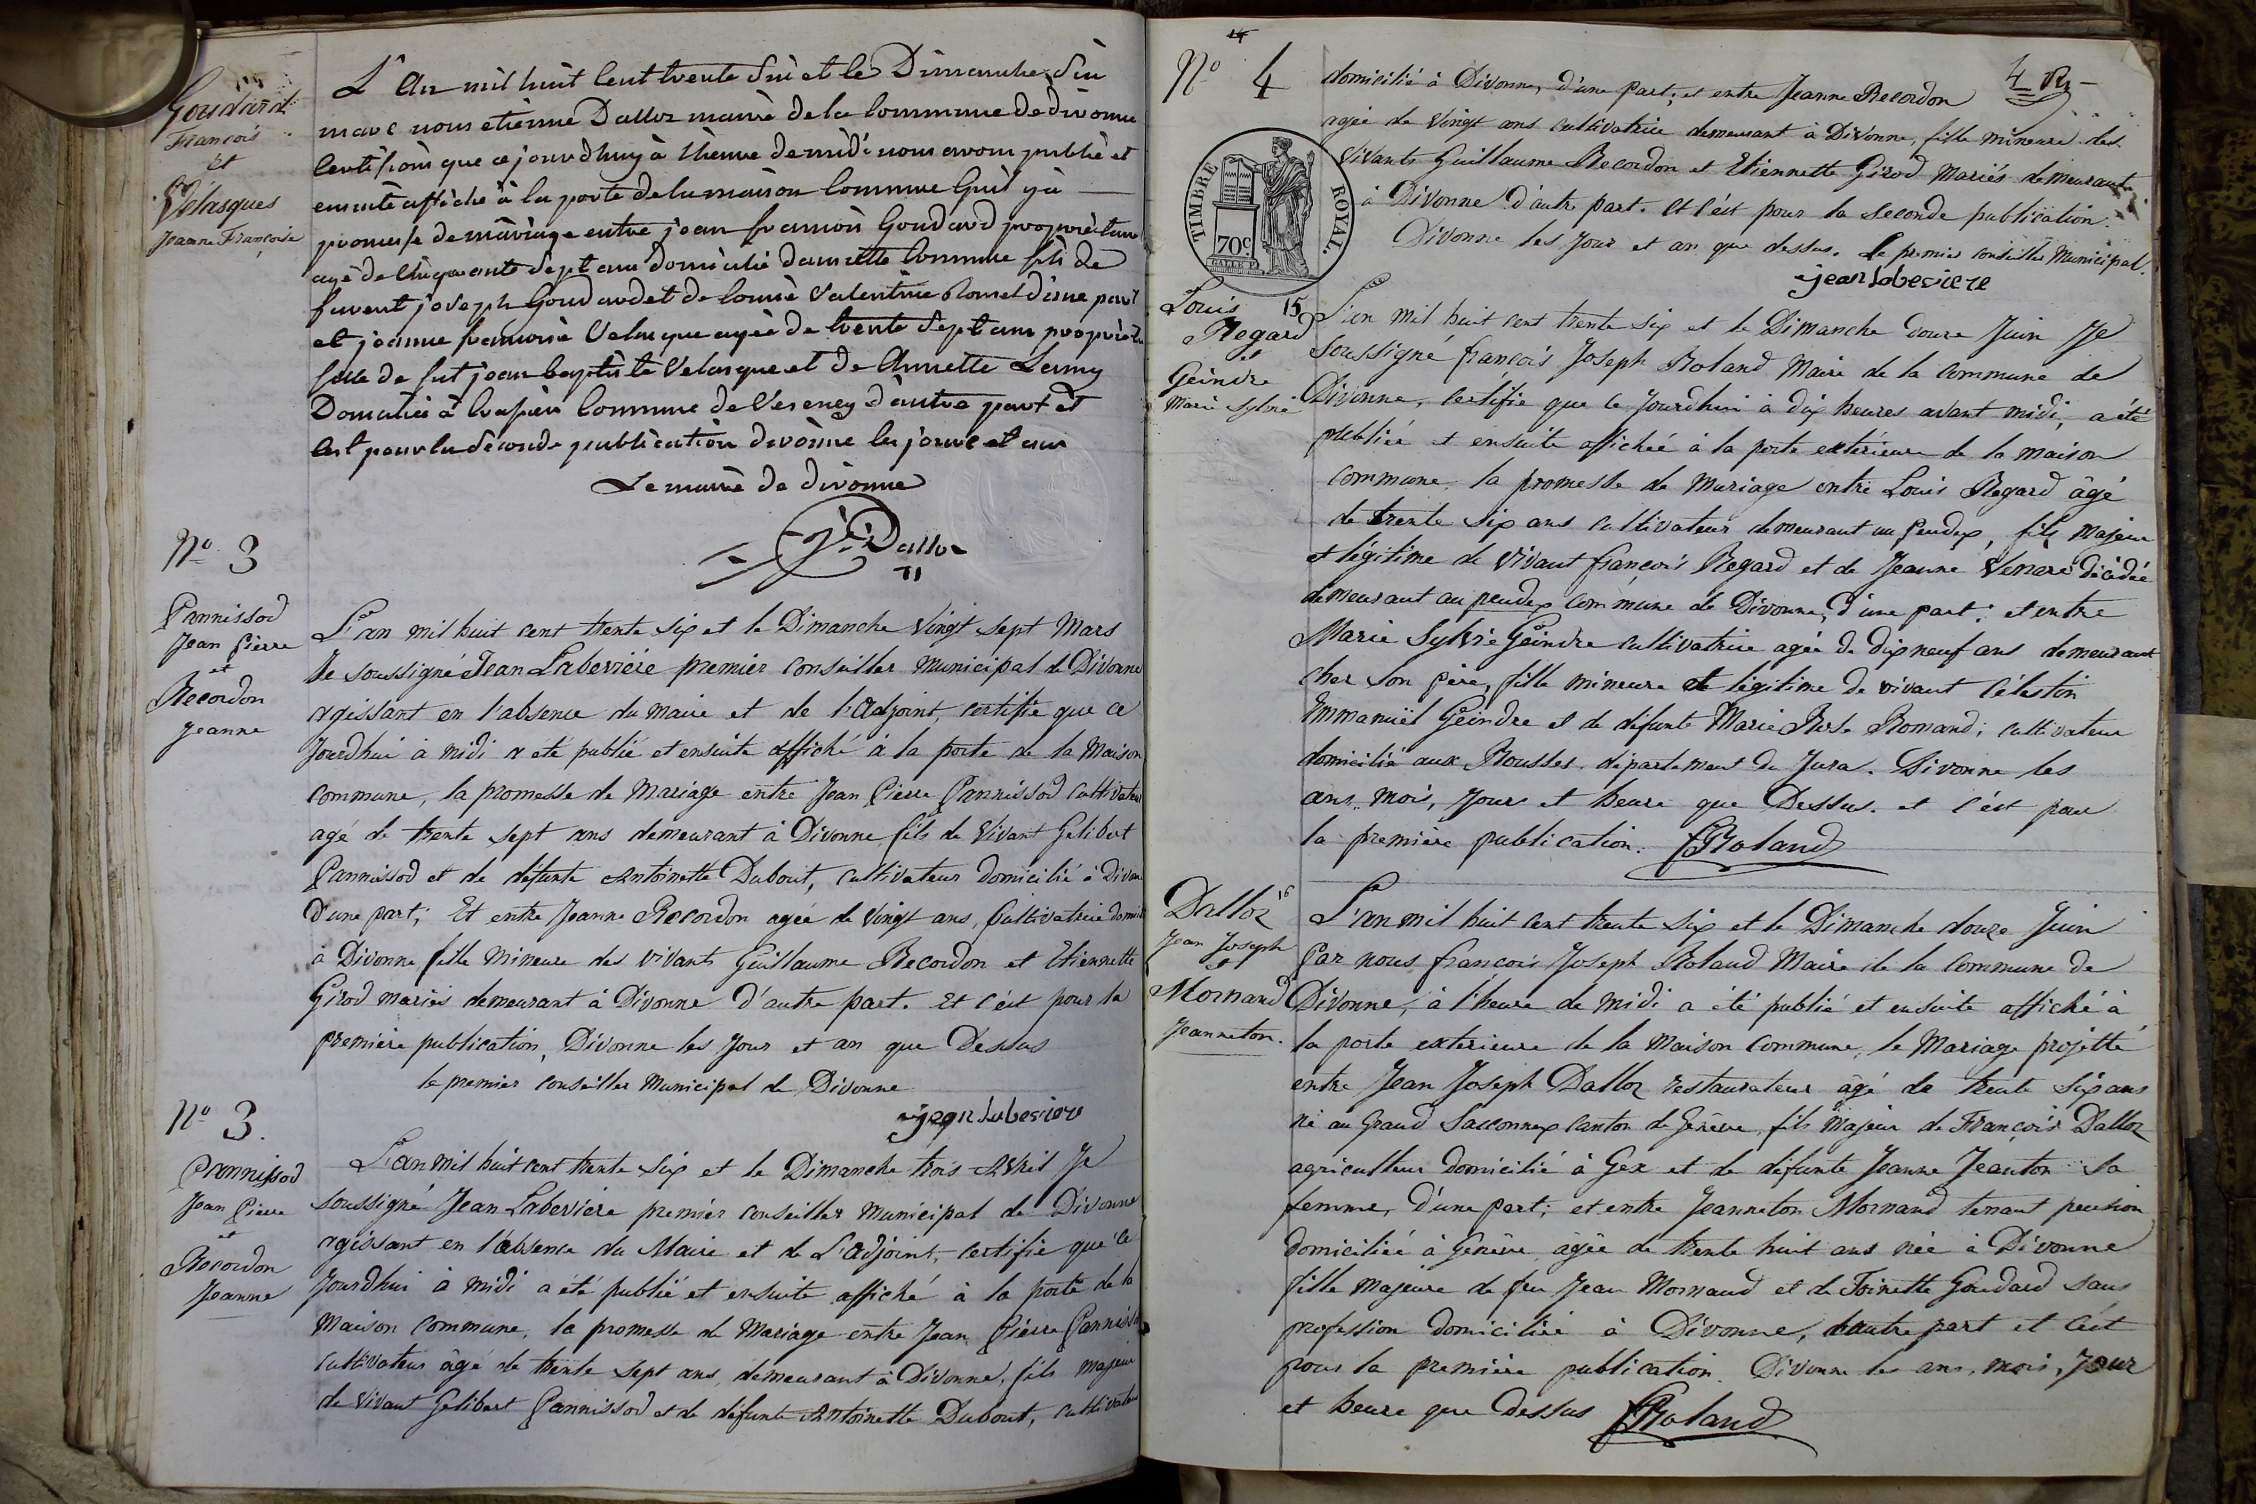 Goudard
François
et
Vélasques
Jeanne Françoise
L'An mil huit Cent trente six et le Dimanche six
mare nous etiènne Dalloz mairè de la Commune de divonne
Certifions que ce jourdhuy à l'heure de midi nous avons publiè et
ensuitè affichè à la porte de la maison Commune quil y à
promesse de màriage entre jean francois Goudard propriètaire
agè de Cinquante Sept ans domicilié dans cette Commune fils de
furent joseph Goudard et de louise Valentine Romel d'une part
et jeanne francoise Velasque agèe de trente Sept ans propriètaire
fille de fut jean baptiste Velasque et de Annette Lamy
Domicilièe à Commune de Vesency d'autre part et
Cest pour la Séconde publication divonne les jour et an
Le mairè de divonne
Dalloz
Nº 3
Pannissod
Jean Pierre
et
Recordon
Jeanne
L'an mil huit cent trente six et le Dimanche Vingt sept Mars
Je soussigné Jean Labeviére premier conseiller municipal de Divonne
agissant en l'absence du maire et de l'adjoint, certifie que ce
Jourdhui à midi a été publié et ensuite affiché à la porte de la Maison
commune, la promesse de Mariage entre Jean Pierre Pannissod cultivateur
agé de trente sept ans demeurant à Divonne fils de Vivant Gelibert
Pannissod et de défunte Antoinette Dubout, cultivateur domicilié à Divonne
D'une part; Et entre Jeanne Recordon agée de Vingt ans, Cultivatrice domici
à Divonne fille Mineure des vivants Guillaume Recordon et Etiennette
Girod mariés demeurant à Divonne d'autre part. Et c'est pour la
première publication, Divonne les Jour et an que Dessus
le premier conseiller Municipal de Divonne
jean labeviere
Nº 3.
Pannissod
Jean Pierre
et
Recordon
Jeanne
L'an mil huit cent trente Six et le Dimanche trois Avril Je
soussigné Jean Labeviére premier conseiller municipal de Divonne
agissant en l'absence du Maire et de L'adjoint, certifie que ce
Jourdhui à midi a été publié et ensuite affiché à la porte de la
Maison commune, la promesse de Mariage entre Jean Pierre Panniss
cultivateur âgé de trente sept ans, demeurant à Divonne, fils majeur
de Vivant Gelibert Pannissod et de défunte Antoinette Dubout, cultivateur
Nº 4
4
domicilié à Divonne, d'une part; et entre Jeanne Recordon
agée de Vingt ans cultivatrice demeurant à Divonne, fille mineure des
Vivants Guillaume Recordon et Etiennette Girod Mariés demeurant
à Divonne d'autre part. et c'est pour la Seconde publication.
Divonne les Jour et an que dessus. Le premier conseiller Municipal.
jean labeviere
TIMBRE ROYAL.
70c.
Louis 15
Regard
et
Geindre
Marie Sylvie
L'an mil huit cent trente six et le Dimanche douze Juin Je
Soussigné françois Joseph Roland Maire de la commune de
Divonne, certifie que ce Jourdhui à dix heures avant midi, a été
publiée et ensuite affichée à la porte extérieure de la maison
commune, la promesse de Mariage entre Louis Regard âgé
de trente six ans cultivateur demeurant au peudex, fils Majeur
et légitime de Vivant françois Regard et de Jeanne décédée
demeurant au peudex commune de Divonne, d'une part; et entre
Marie Sylvie Geindre cultivatrice agée de dix neuf ans demeurant
chez son père, fille mineure et légitime de vivant Célestin
Emmanuël Geindre et de défunte Marie Rose Romand; cultivateur
domicilié aux Rousses, département du Jura. Divonne les
ans, mois, Jours et heure que Dessus. et c'est pour
la première publication. FRoland
Dalloz 16
Jean Joseph
et
Mornand
Jeanneton.
L'an mil huit cent trente Six et le Dimanche douze Juin
Par nous françois Joseph Roland Maire de la commune de
Divonne, à l'heure de midi a été publié et ensuite affiché à
la porte exterieure de la Maison commune, le Mariage projetté
entre Jean Joseph Dalloz restaurateur âgé de trente Six ans
né au Grand Sacconnex canton de Genève, fils majeur de François Dalloz
agriculteur domicilié à Gex et de défunte Jeanne Jeanton sa
femme, d'une part; et entre Jeanneton Mornand tenant pension
domiciliée à Genève, âgée de trente huit ans née à Divonne
fille majeure de feu Jean Mornand et de Toinette Goudard sans
profession domiciliée à Divonne, d'autre part et c'est
pour la première publication. Divonne les ans, mois, Jour
et heure que Dessus FRoland